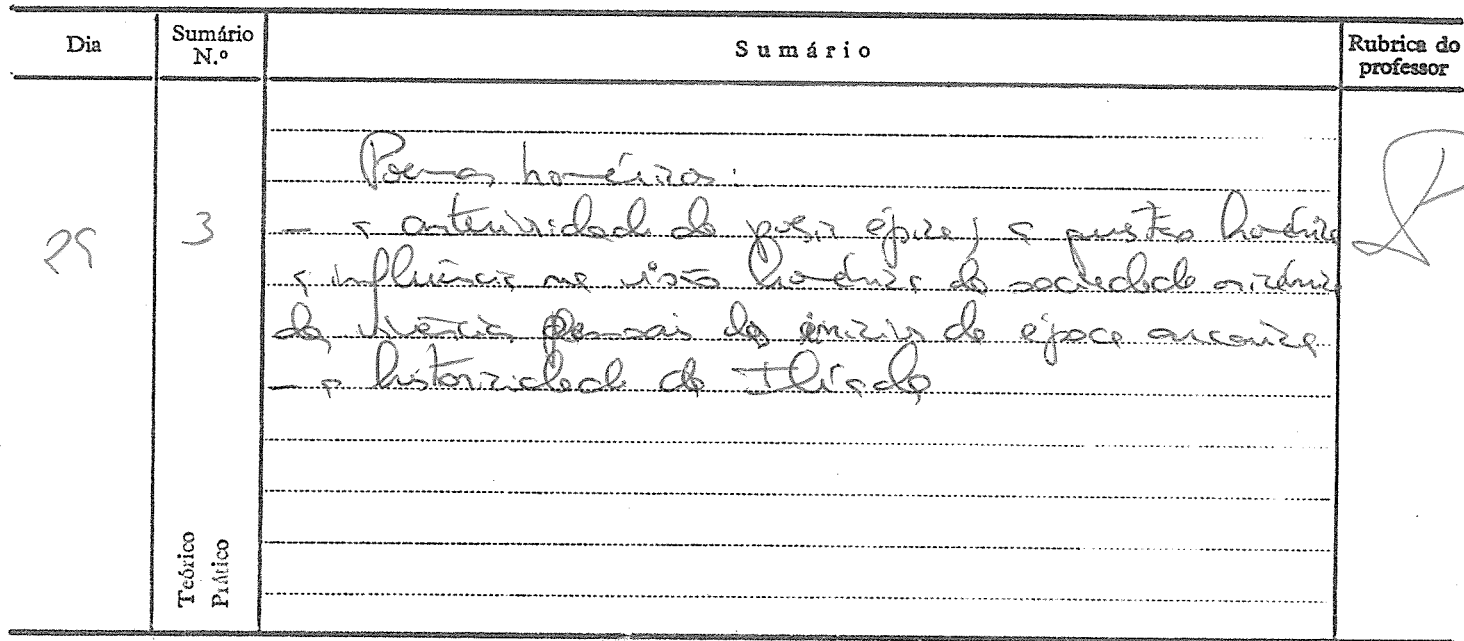 Dia Sumário N.º Sumário Rubrica do professor
Poemas homéricos:
29 3 - a anterioridade da poesia épica; a questão homérica
a influência na visão homérica da sociedade micénica
da vivência pessoais do início da época arcaica
- a historicidade da Ilíada
Teórico
Prático